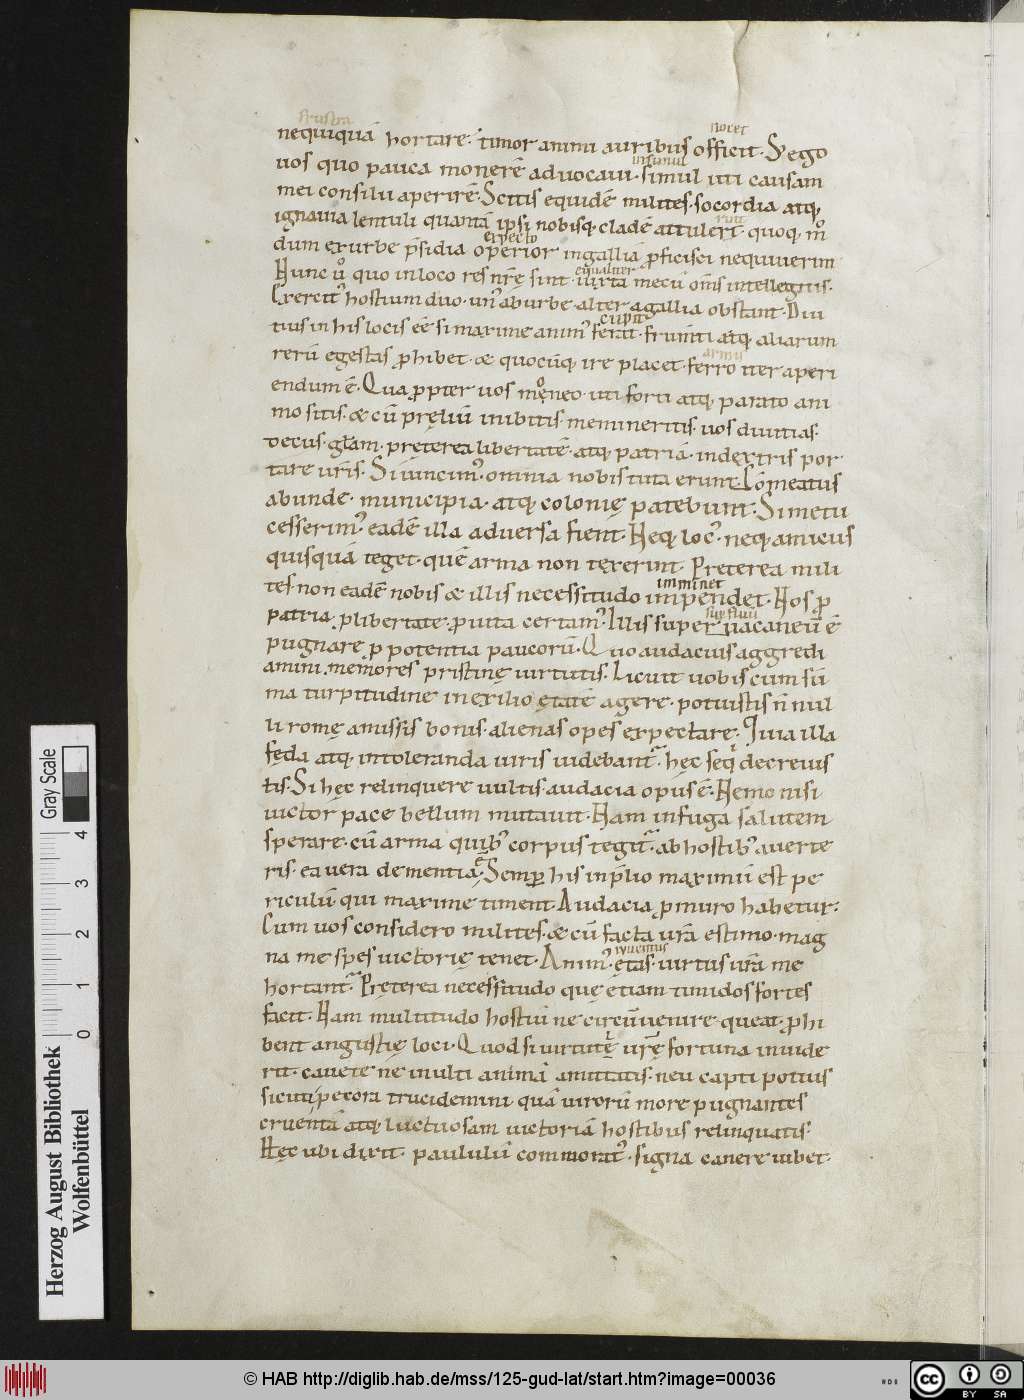 frustra
nocet
nequiquā hortare· timor animi auribus officit· S; ego
insimul
uos quo pauca monerē aduocaui· simul uti causam
mei consilii aperirē· Scitis equidē milites· socordia atq;
ignauia lentuli quantā ipsi nobisq; cladē attulerit· quoq; mͦ
expecto
dum ex urbe p̄sidia operior in galliā p̄ficisci nequiuerim
equaliter
Nunc uͦ quo in loco res nr̄ę sint· iuxta mecū om̄s intellegitis·
Exercit᾽ hostium duo· un᾽ ab urbe· alter a gallia obstant· Diu
cupit
tius in his locis eē si maxime anim᾽ ferat· frum̄ti atq; aliarum
armis
rerū egestas ꝓhibet· & quocūq; ire placet· ferro iter aperi
endum ē· Qua ꝓpter uos moneo· uti forti atq; parato ani
mo sitis· & cū pręliū inibitis· memineritis· uos diuitias·
decus· gl̄am· pręterea libertatē· atq; patriā· in dextris por
tare ur̄is· Si uincim᾽· omnia nobis tuta erunt· Cōmeatus
abunde· municipia· atq; colonię patebunt· Si metu
cesserim᾽· eadē illa aduersa fient· Neq; loc᾽· neq; amicus
quisquā teget· quē arma non texerint· Pręterea mili
imminet
tes non eadē nobis & illis necessitudo impendet· Nos ꝓ
superfluū
patria· ꝓ libertate· ꝓ uita certam᾽· Illis superuacaneū ē
pugnare ꝓ potentia paucorū· Quo audacius aggredi
amini· memores pristinę uirtutis· Licuit uobis cum sū
ma turpitudine in exilio ętatē agere· potuistis n̄ nul
li romę amissis bonis· alienas opes expectare· Quia illa
fęda atq; intoleranda uiris uidebant᾽· hęc seq̓ decreuis
tis· Si hęc relinquere uultis· audacia opus ē· Nemo nisi
uictor pace bellum mutauit· Nam in fuga salutem
sperare· cū arma quib᾽ corpus tegit᾽· ab hostib᾽ auerte
ris· ea uera dementia ē· Semꝑ his in p̄lio maximū est pe
riculū qui maxime timent· Audacia ꝓ muro habetur·
Cum uos considero milites· & cū facta ur̄a estimo· mag
iuuentus
na me spes uictorię tenet· Anim᾽· ętas· uirtus ur̄a me
hortant᾽· Pręterea necessitudo quę etiam timidos fortes
facit· Nam multitudo hostiū ne circūuenire queat· ꝓhi
bent angustię loci· Quod si uirtuti ur̄ę fortuna inuide
rit· cauete ne inulti animā amittatis· neu capti potius
sicuti pecora trucidemini· quā uirorū more pugnantes
cruentā atq; luctuosam uictoriā hostibus relinquatis·
Hęc ubi dixit· paululū commorat᾽· signa canere iubet·
Herzog August Bibliothek
Wolfenbüttel
Gray Scale
0 1 2 3 4
© HAB http://diglib.hab.de/mss/125-gud-lat/start.htm?image=00036
cc BY SA